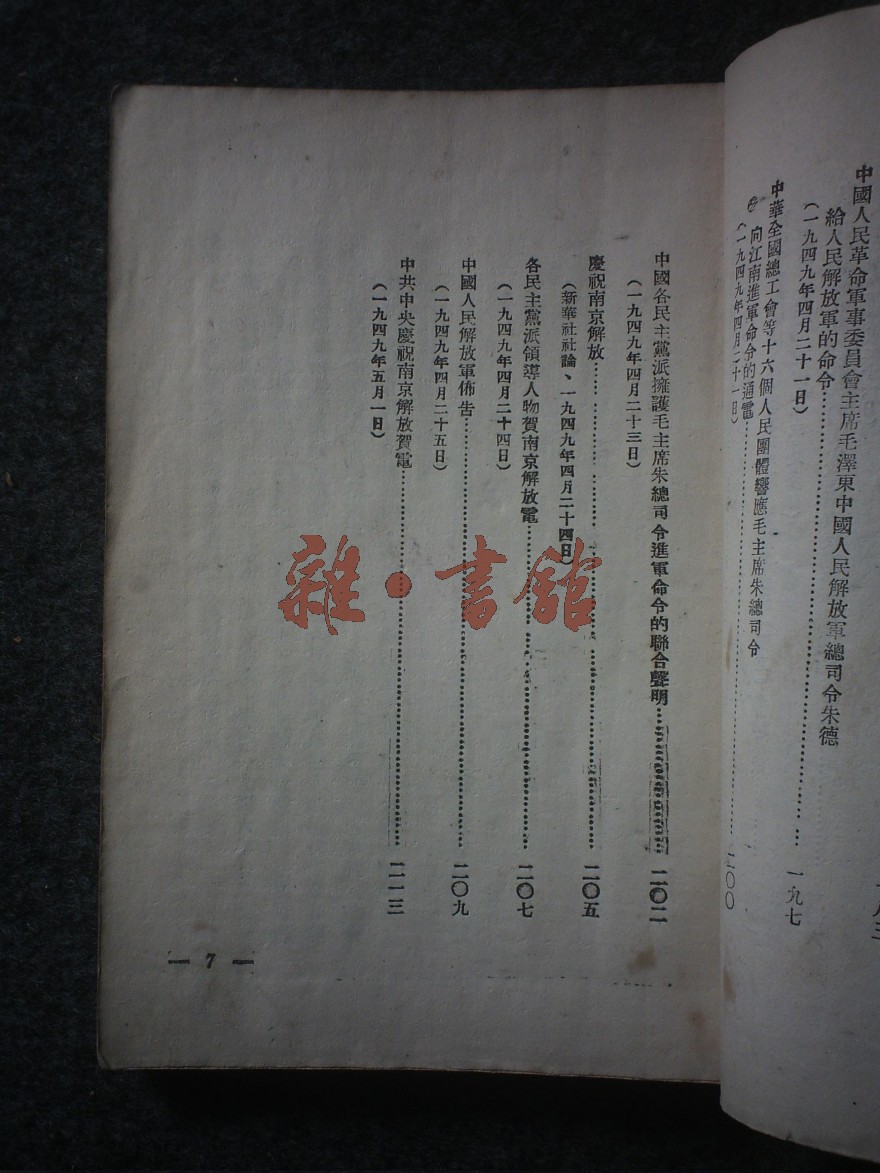 中國人民革命軍事委員會主席毛澤東中國人民解放軍總司令朱德
給人民解放軍的命令…………………………一九七
（一九四九年四月二十一日）
中華全國總工會等十六個人民團體響應毛主席朱總司令
向江南進軍命令的通電…………………………二〇〇
（一九四九年四月二十一日）
中國各民主黨派擁護毛主席朱總司令進軍命令的聯合聲明…………二〇二
（一九四九年四月二十三日）
慶祝南京解放…………………………二〇五
（新華社社論、一九四九年四月二十四日）
各民主黨派領導人物賀南京解放電…………………………二〇七
（一九四九年四月二十四日）
中國人民解放軍佈告…………………………二〇九
（一九四九年四月二十五日）
中共中央慶祝南京解放賀電…………………………二一三
（一九四九年五月一日）
— 7 —
雜·書館